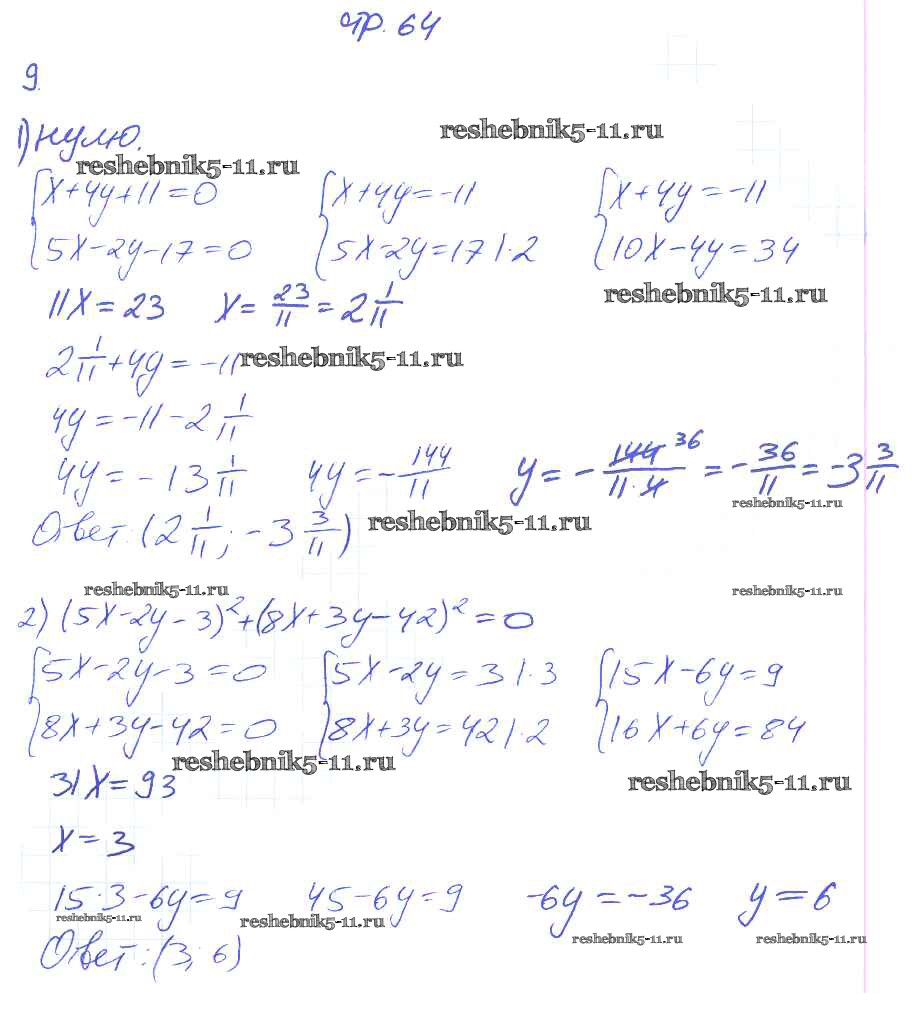 стр. 64
9.
1) нулю.
reshebnik5-11.ru
reshebnik5-11.ru
{x+4y+11=0 {x+4y=-11 {x+4y=-11
{5x-2y-17=0 {5x-2y=17 |·2 {10x-4y=34
11x=23 x=23/11=2 1/11
reshebnik5-11.ru
2 1/11+4y=-11
reshebnik5-11.ru
4y=-11-2 1/11
4y=-13 1/11 4y=-144/11 y=-144 36/11·4=-36/11=-3 3/11
reshebnik5-11.ru
Ответ: (2 1/11; -3 3/11)
reshebnik5-11.ru
reshebnik5-11.ru
reshebnik5-11.ru
2) (5x-2y-3)²+(8x+3y-42)²=0
{5x-2y-3=0 {5x-2y=3 |·3 {15x-6y=9
{8x+3y-42=0 {8x+3y=42 |·2 {16x+6y=84
reshebnik5-11.ru
reshebnik5-11.ru
31x=93
x=3
15·3-6y=9 45-6y=9 -6y=-36 y=6
reshebnik5-11.ru
reshebnik5-11.ru
reshebnik5-11.ru
reshebnik5-11.ru
Ответ: (3; 6)